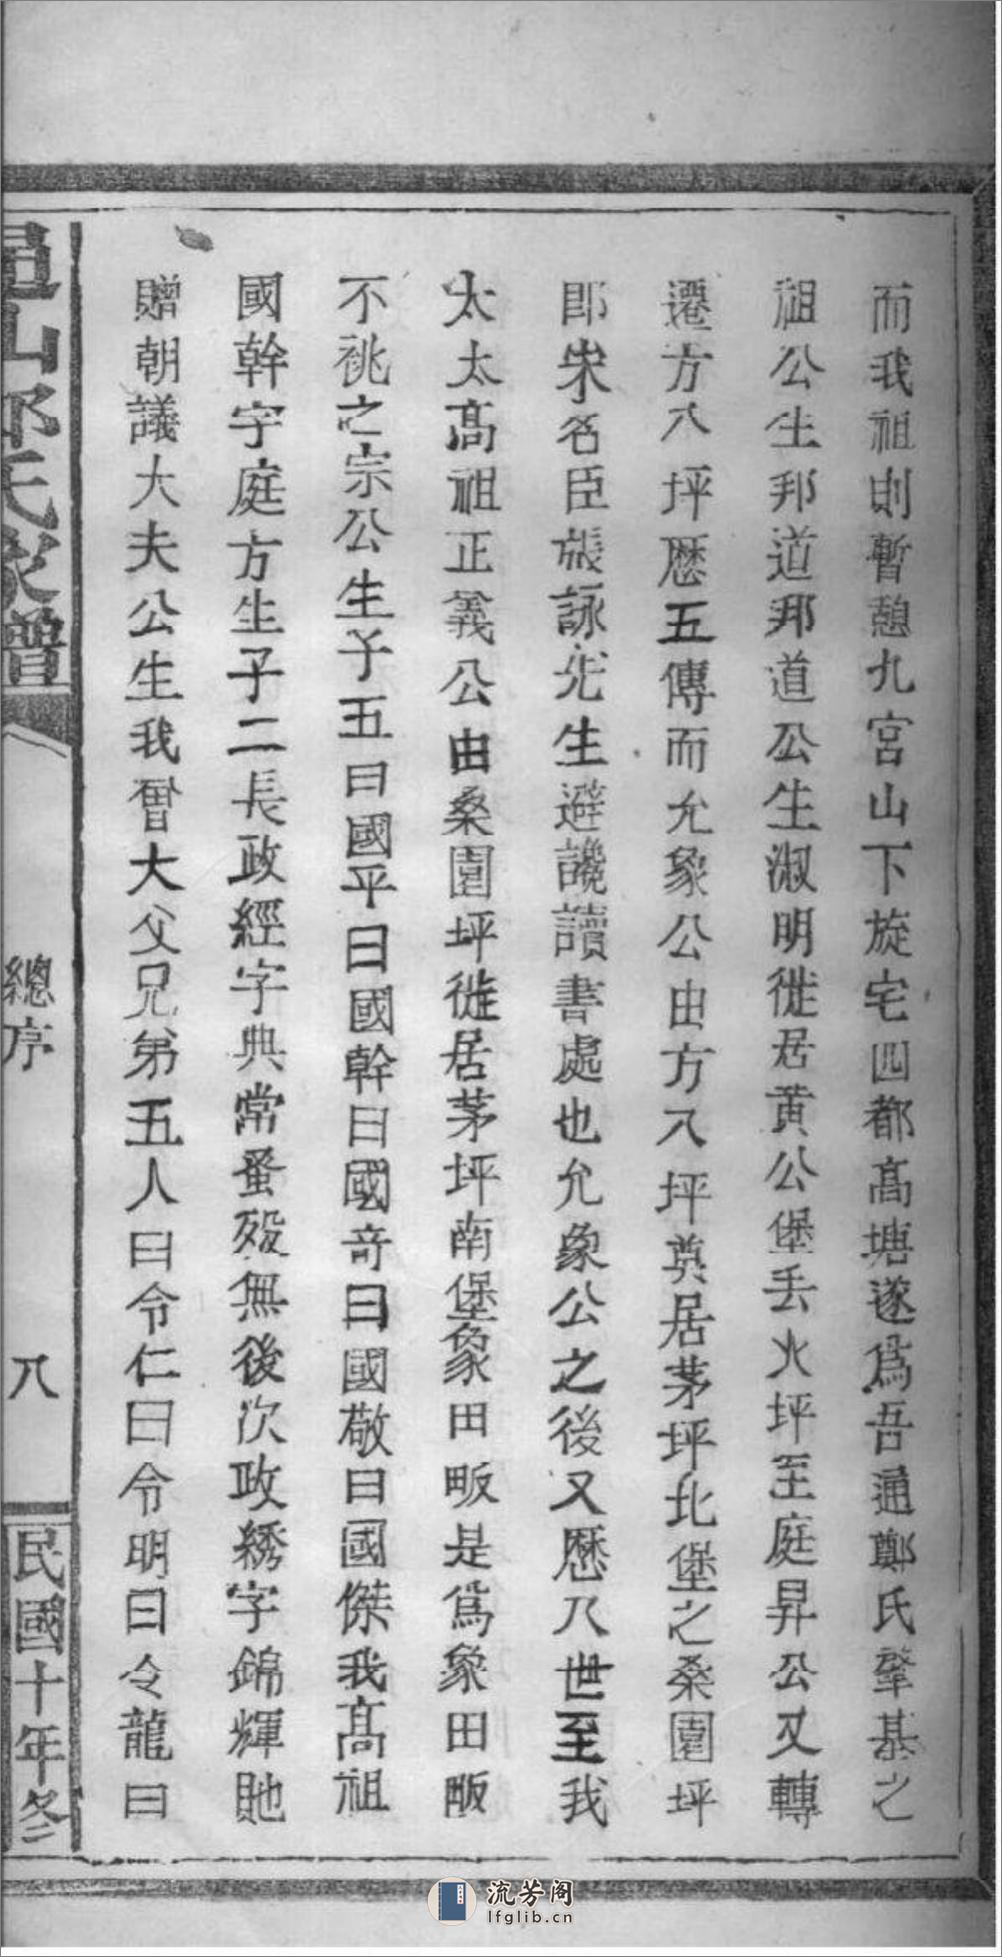 而我祖則暫憩九宮山下旋宅四都髙塘遂爲吾通鄭氏肇基之
祖公生邦道邦道公生淑明徙居黄公堡丟火坪至庭昇公又轉
遷方八坪歷五傳而允象公由方八坪奠居茅坪北堡之桑園坪
郎宋名臣張詠先生避讒讀書處也允象公之後又歷八世至我
太太髙祖正義公由桑園坪徙居茅坪南堡象田畈是爲象田畈
不祧之宗公生子五曰國平曰國幹曰國竒曰國敬曰國傑我髙祖
國幹字庭方生子二長政經字典常蚤殁無後次政綉字錦輝貤
贈朝議大夫公生我曾大父兄弟五人曰令仁曰令明曰令龍曰
氏家譜
總序
八
民國十年冬
流芳阁
lfglib.cn